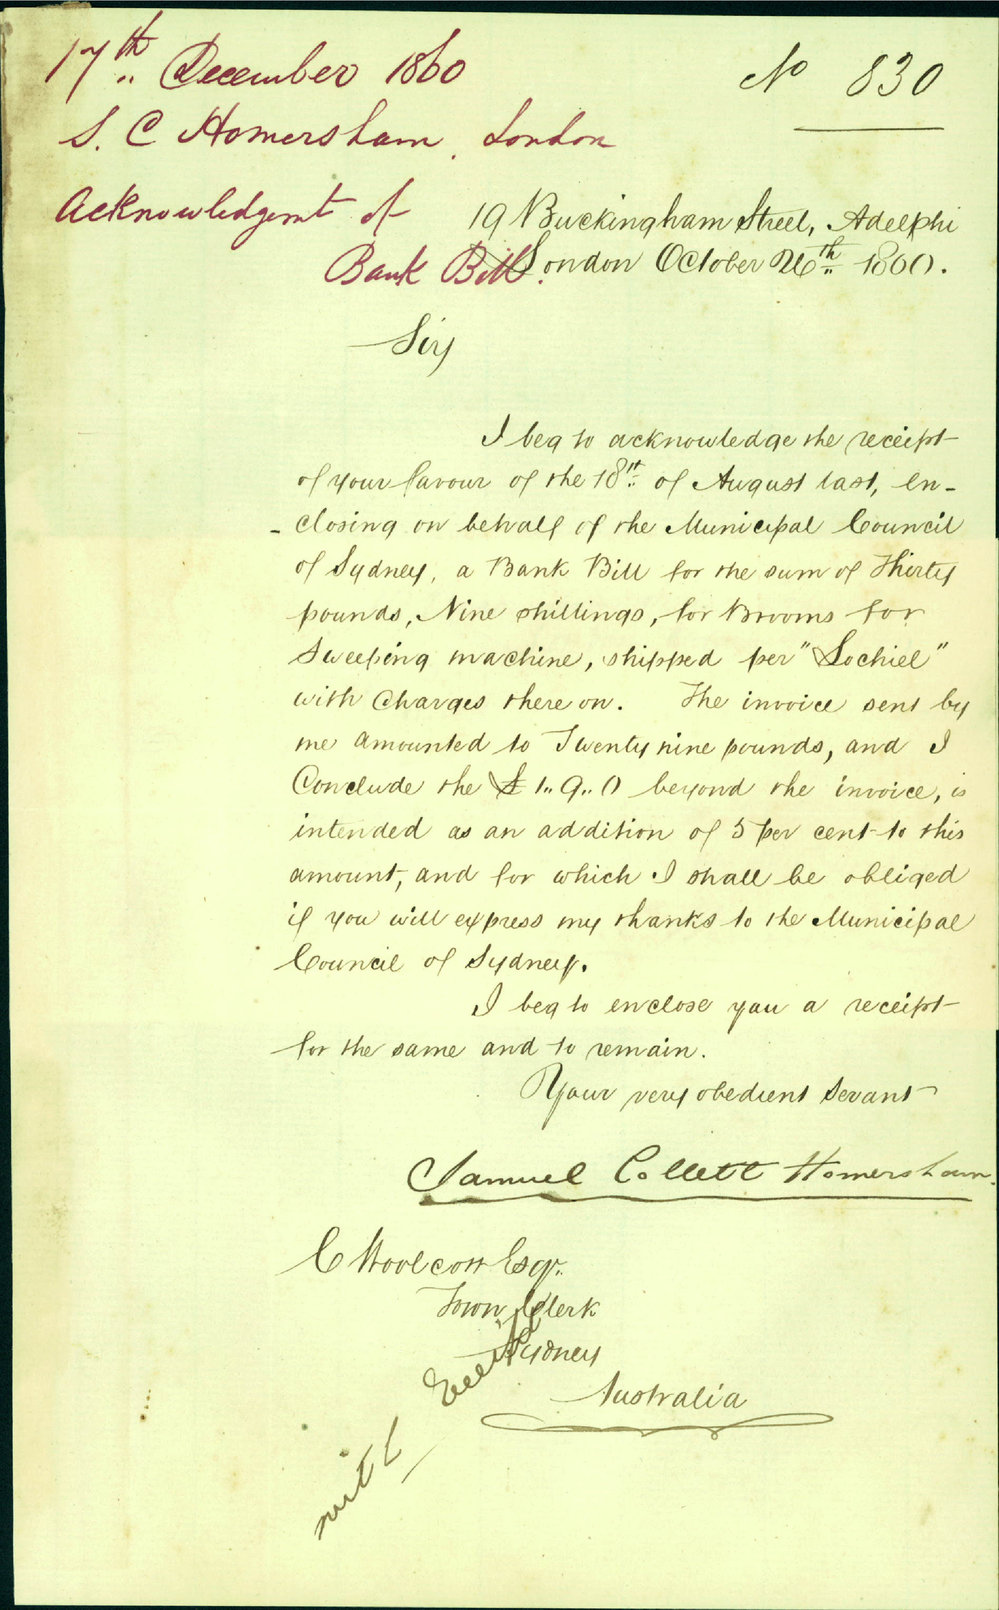 17th December 1860
No 830
S. C Homersham, London
Acknowledgmt of
Bank Bill.
19 Buckingham Street, Adelphi
London October 26th 1860.
Sir
I beg to acknowledge the receipt
of your favour of the 18st of August last, en-
-closing on behalf of the Municipal Council
of Sydney, a Bank Bill for the sum of Thirty
pounds, Nine shillings, for Brooms for
Sweeping machine, shipped per "Lochiel"
with Charges there on. The invoice sent by
me amounted to Twenty nine pounds, and I
Conclude the £1..9..0 beyond the invoice, is
intended as an addition of 5 per cent to this
amount, and for which I shall be obliged
if you will express my thanks to the Municipal
Council of Sydney.
I beg to enclose you a receipt
for the same and to remain.
Your very obedient Servant
Samuel Collett Homersham.
C Woolcott Esqr.
Town Clerk
Sydney
Australia